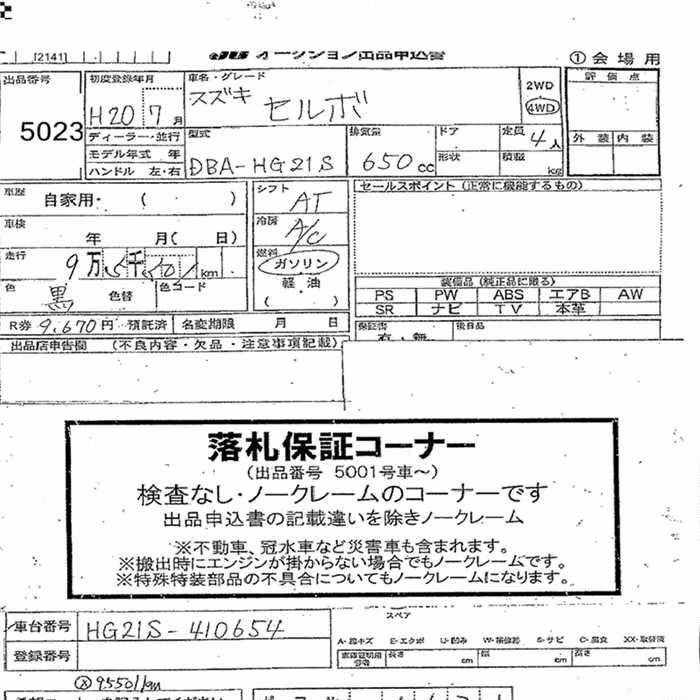 [2141] オークション出品申込書 ①会場用
出品番号 5023
初度登録年月 H20 7月
車名・グレード スズキ セルボ
2WD 4WD
評価点
外装 内装
ディーラー・並行
モデル年式 年
ハンドル 左・右
型式 DBA-HG21S
排気量 650cc
ドア
形状
定員 4人
積載 kg
車歴 自家用・( )
車検 年 月( 日)
走行 9万5千501km
色 黒 色替 色コード
R券 9,670円 預託済 名変期限 月 日
シフト AT
冷房 A/C
燃料 ガソリン
軽油
( )
セールスポイント (正常に機能するもの)
装備品 (純正品に限る)
PS PW ABS エアB AW
SR ナビ TV 本革
保証書 有・無 後日品
出品店申告欄 (不良内容・欠品・注意事項記載)
落札保証コーナー
(出品番号 5001号車～)
検査なし・ノークレームのコーナーです
出品申込書の記載違いを除きノークレーム
※不動車、冠水車など災害車も含まれます。
※搬出時にエンジンが掛からない場合でもノークレームです。
※特殊特装部品の不具合についてもノークレームになります。
車台番号 HG21S-410654
登録番号
スペア
A-線キズ E-エクボ U-凹み W-補修跡 S-サビ C-腐食 XX-取替済
長さ cm 幅 cm 高さ cm
ⓧ95501km